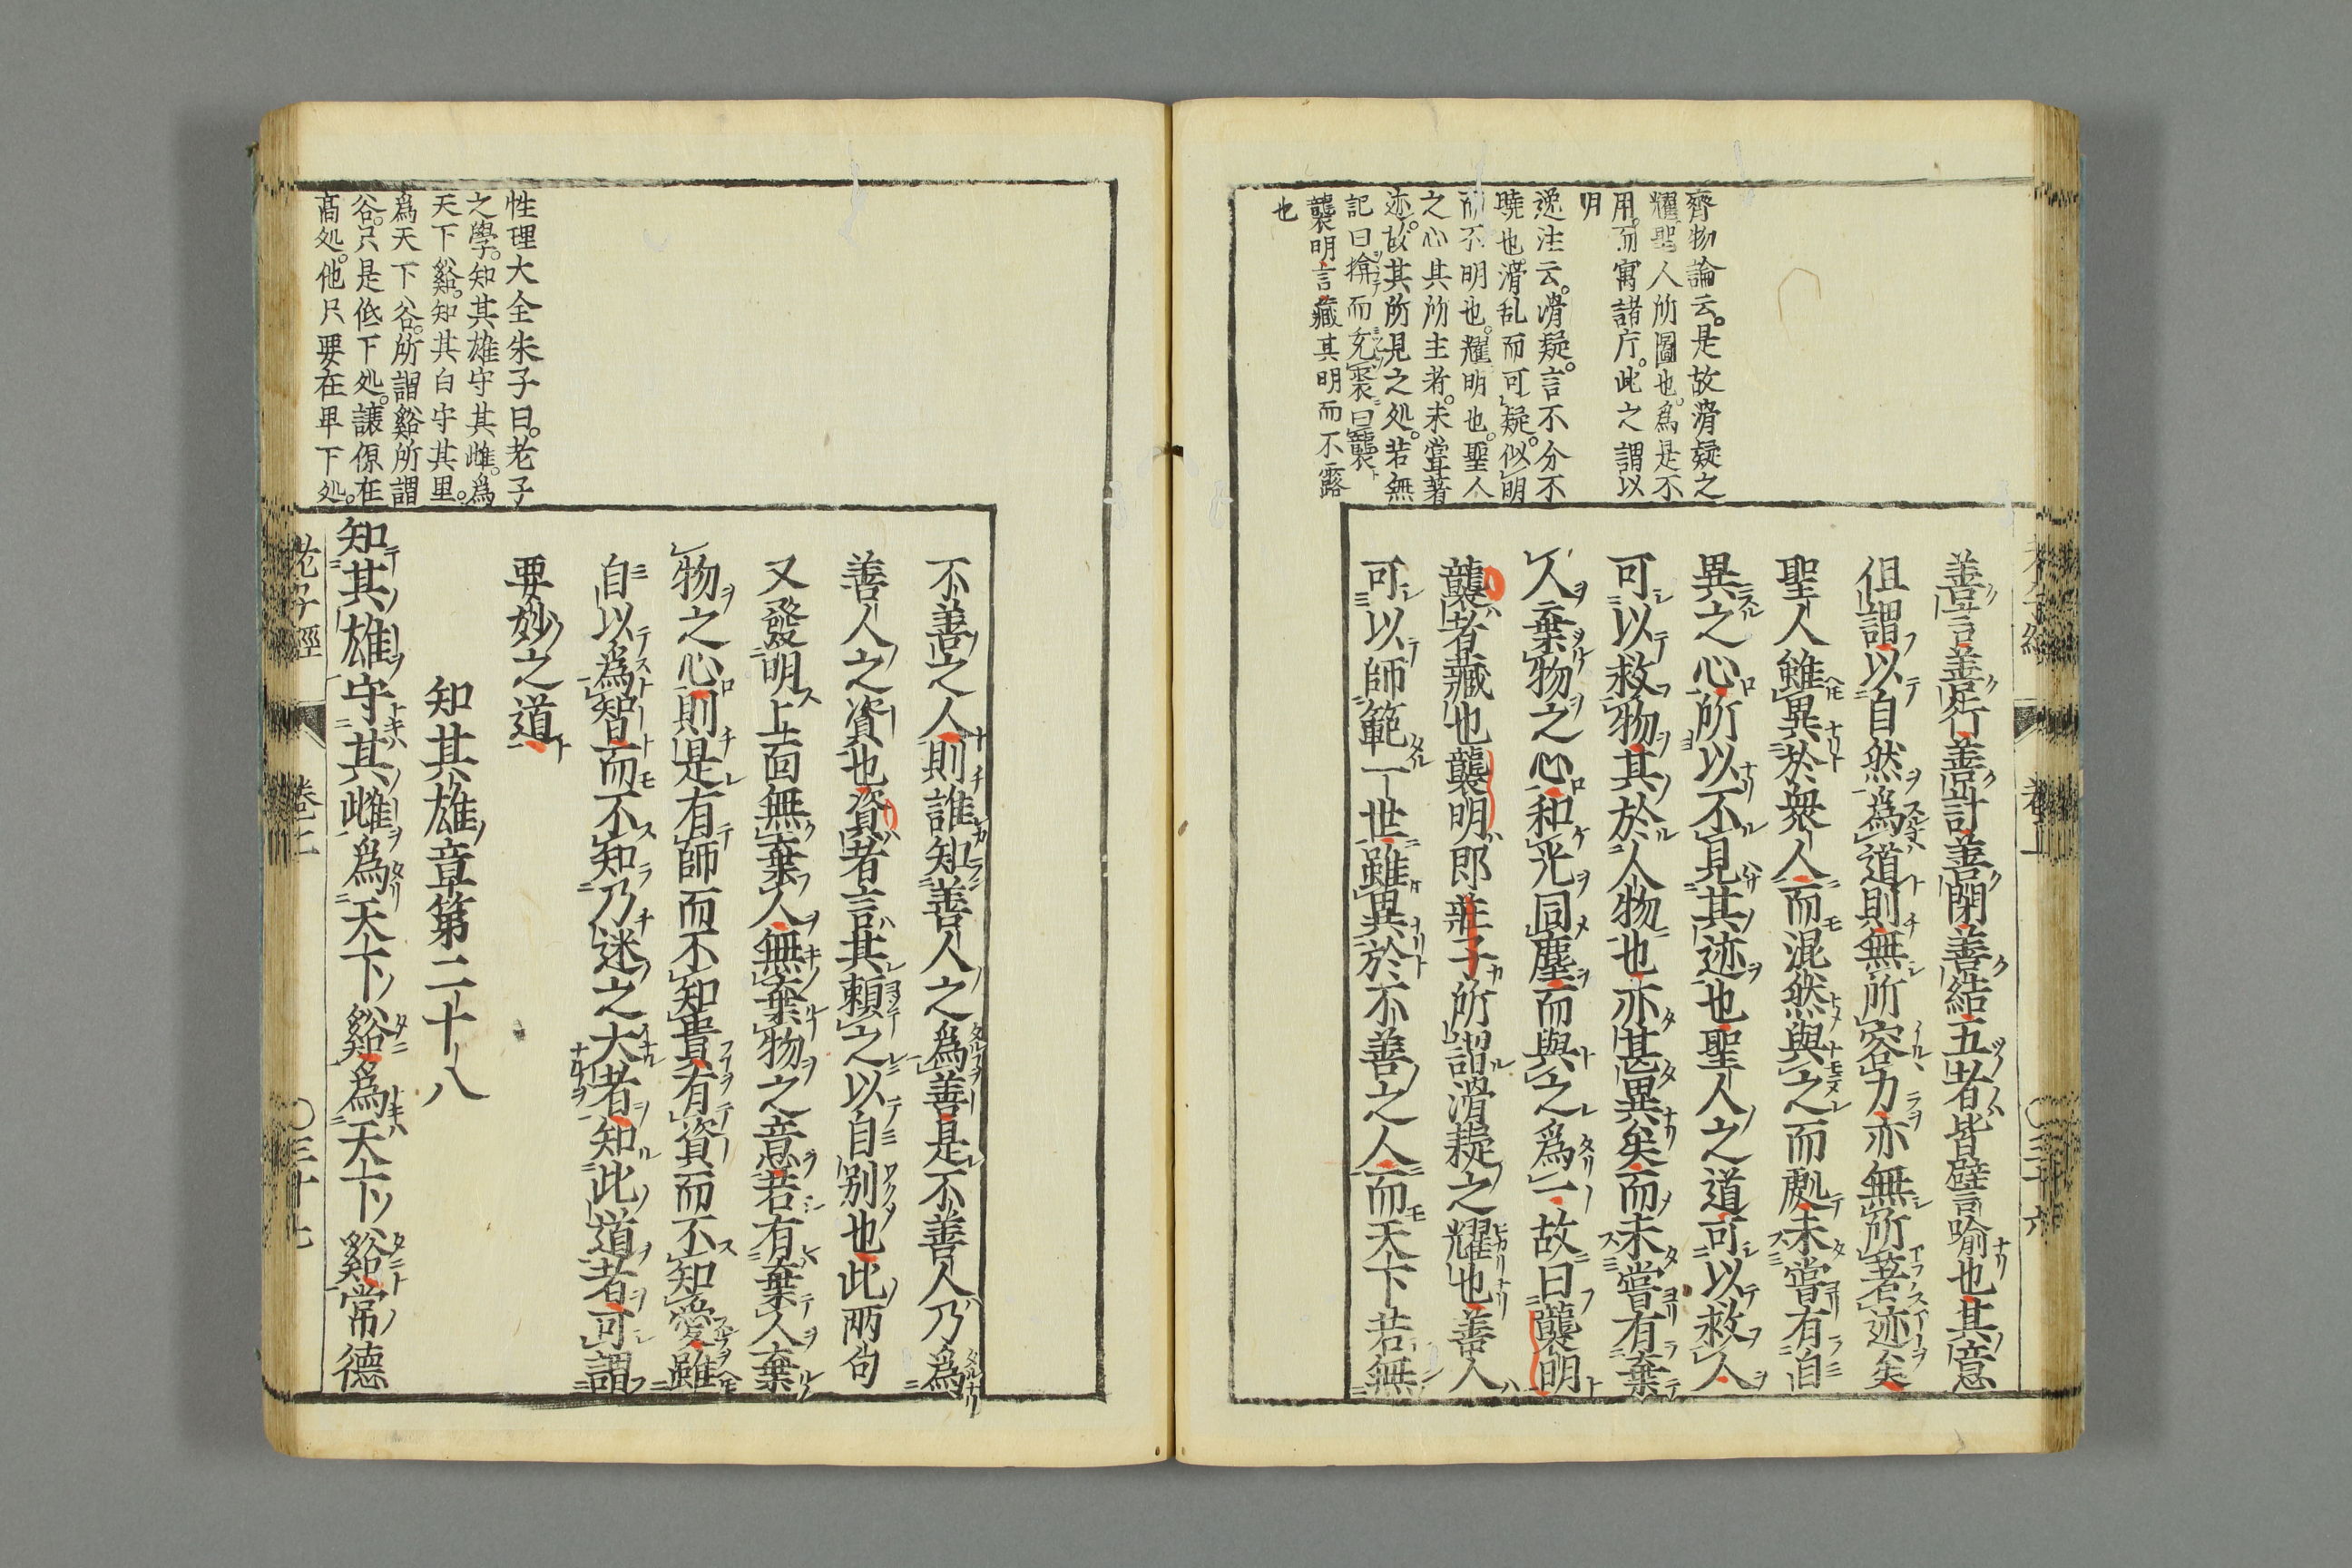 齊物論云是故滑疑之
耀聖人所圖也為是不
用而寓諸庸此之謂以
明
逸注云滑疑言不分不
曉也滑乱而可疑似明
而不明也耀明也聖人
之心其所主者未嘗著
迹故其所見之処若無
記曰揜而充裘曰襲
襲明言藏其明而不露
也
善言善行善計善閉善結五者皆譬喻也其意
但謂以自然為道則無所容力亦無所著迹矣
聖人雖異於衆人而混然與之而處未嘗有自
異之心所以不見其迹也聖人之道可以救人
可以救物其於人物也亦甚異矣而未嘗有棄
人棄物之心和光同塵而與之為一故曰襲明
襲者藏也襲明即莊子所謂滑疑之耀也善人
可以師範一世雖異於不善之人而天下若無
性理大全朱子曰老子
之學知其雄守其雌為
天下谿知其白守其黑
為天下谷所謂谿所謂
谷只是低下処讓伱在
高処他只要在卑下処
不善之人則誰知善人之為善是不善人乃為
善人之資也資者言其頼之以自別也此兩句
又發明上面無棄人無棄物之意若有棄人棄
物之心則是有師而不知貴有資而不知愛雖
自以為智而不知乃迷之大者知此道者可謂
要妙之道
知其雄章第二十八
知其雄守其雌為天下谿為天下谿常德
老子經 卷二 〇三十七